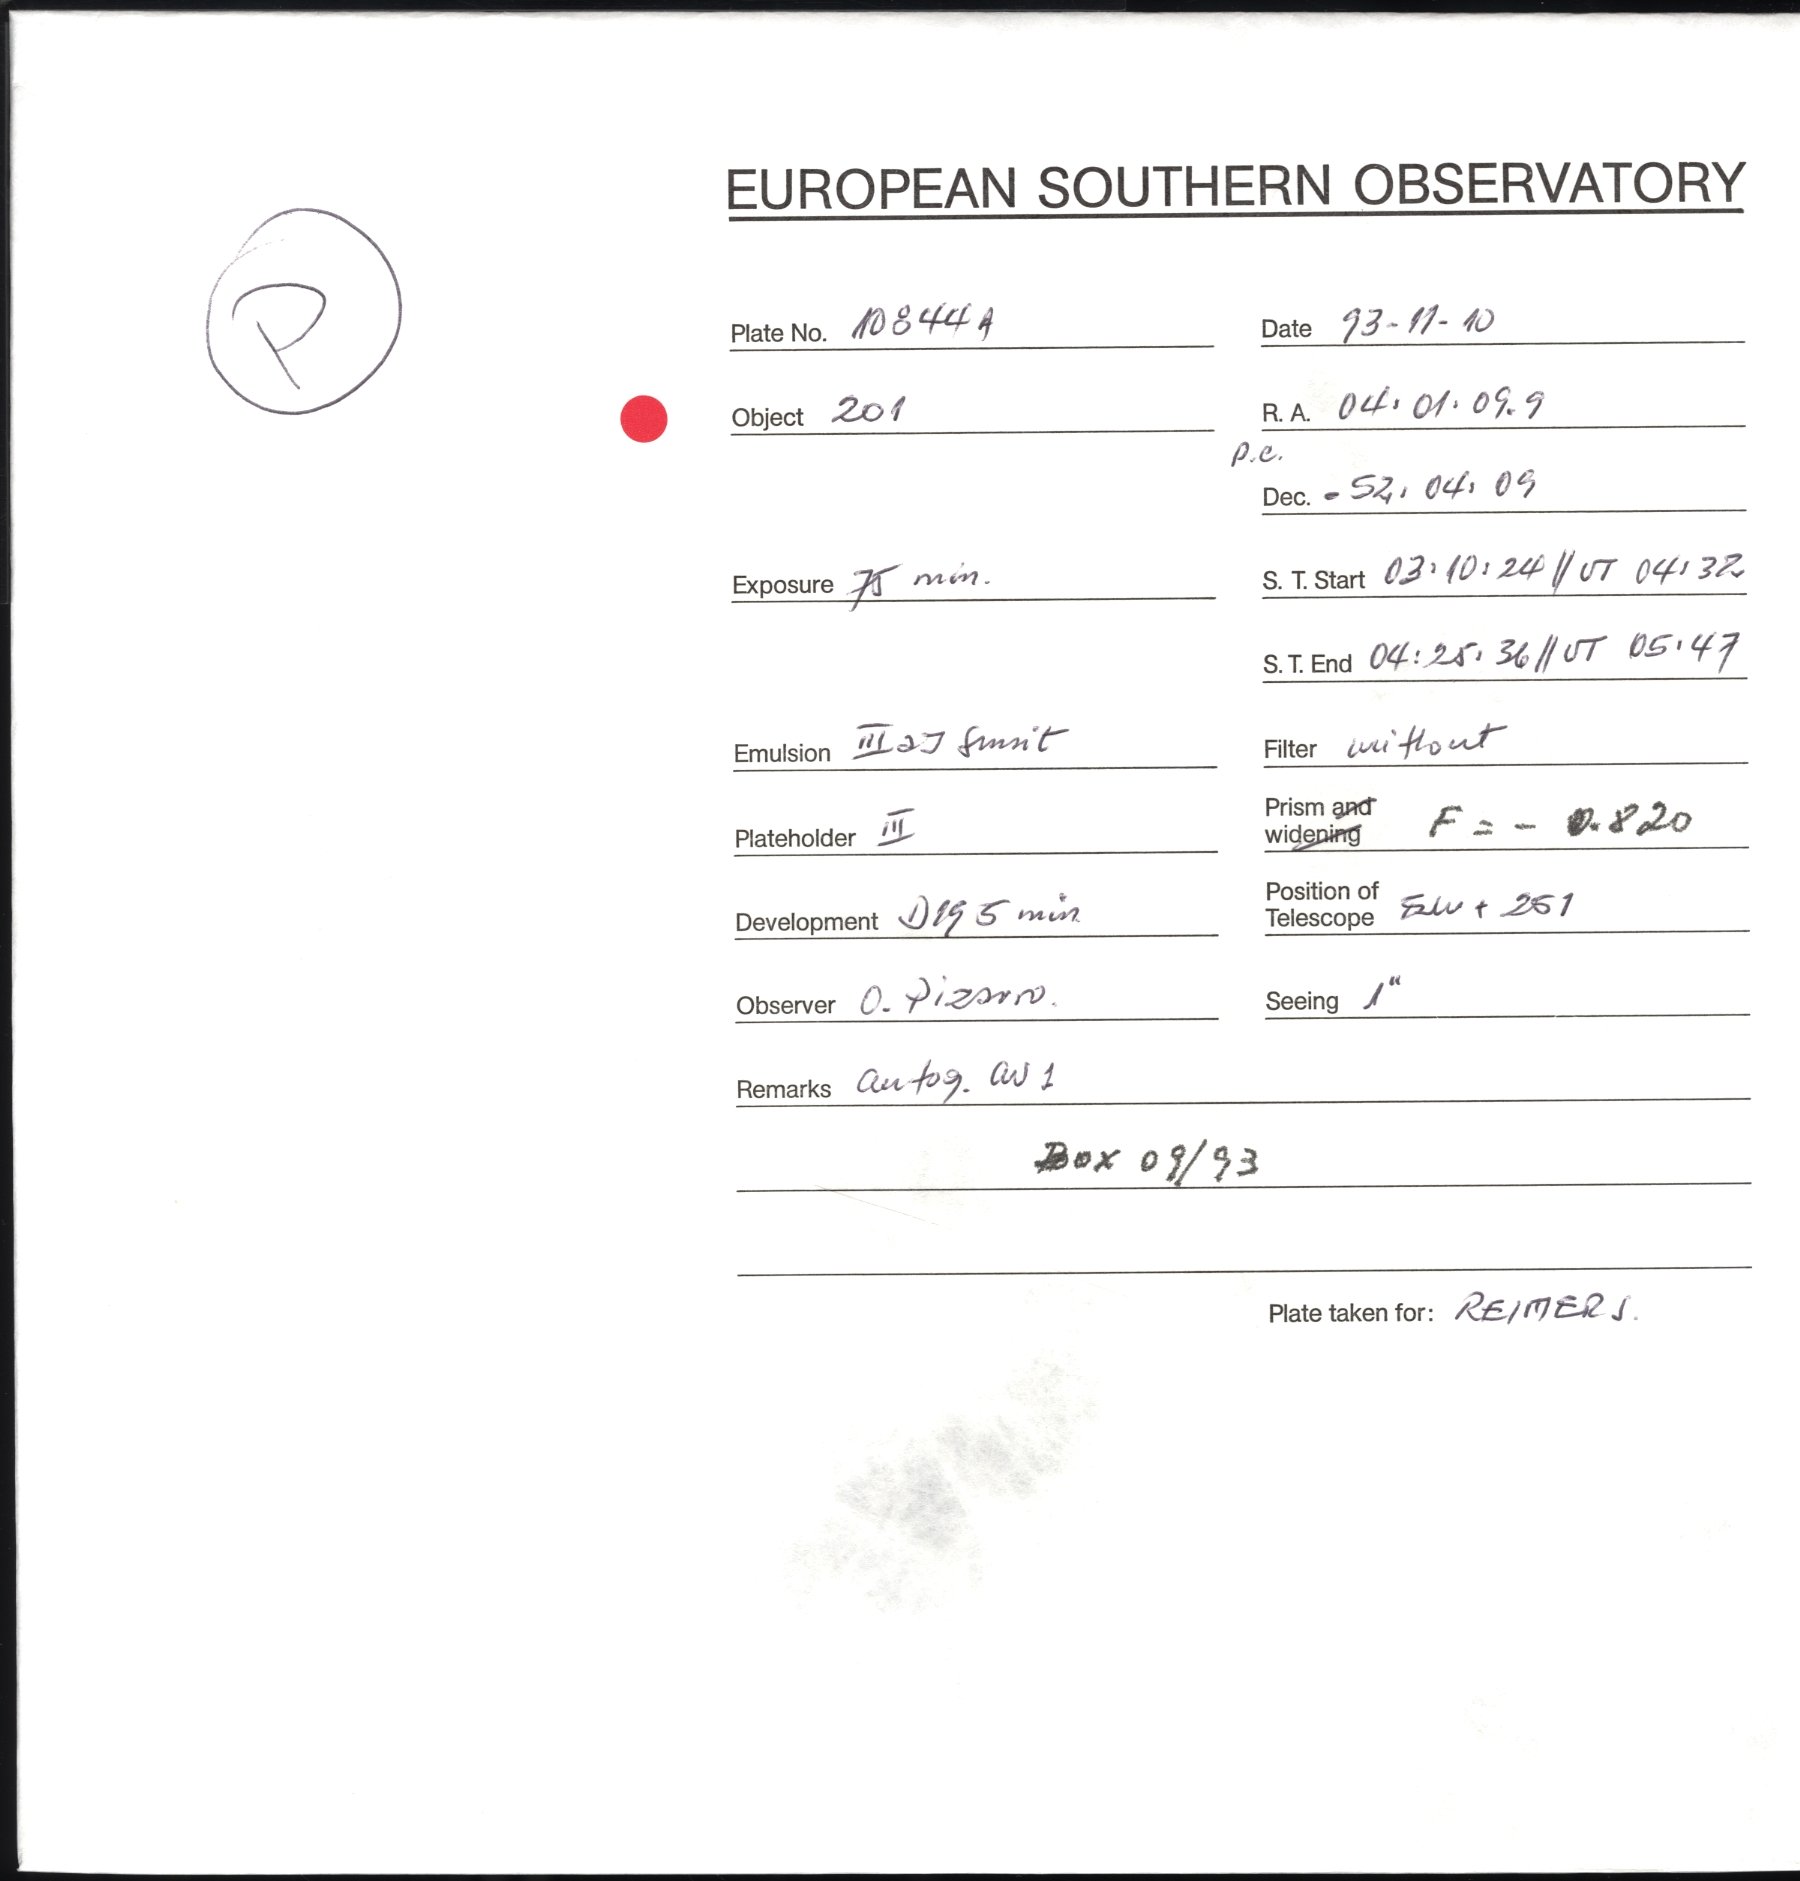 EUROPEAN SOUTHERN OBSERVATORY
P
Plate No. 10844A Date 93-11-10
Object 201 R. A. 04: 01: 09.9
p.c.
Dec. - 52: 04: 09
Exposure 75 min. S. T. Start 03:10:24 // UT 04:32
S. T. End 04:25:36 // UT 05:47
Emulsion III aJ Filter without
Plateholder III Prism and widening F = - 0.820
Development D19 5 min Position of Telescope + 251
Observer O. Pizarro. Seeing 1"
Remarks autog. aw 1
Box 09/93
Plate taken for: REIMERS.